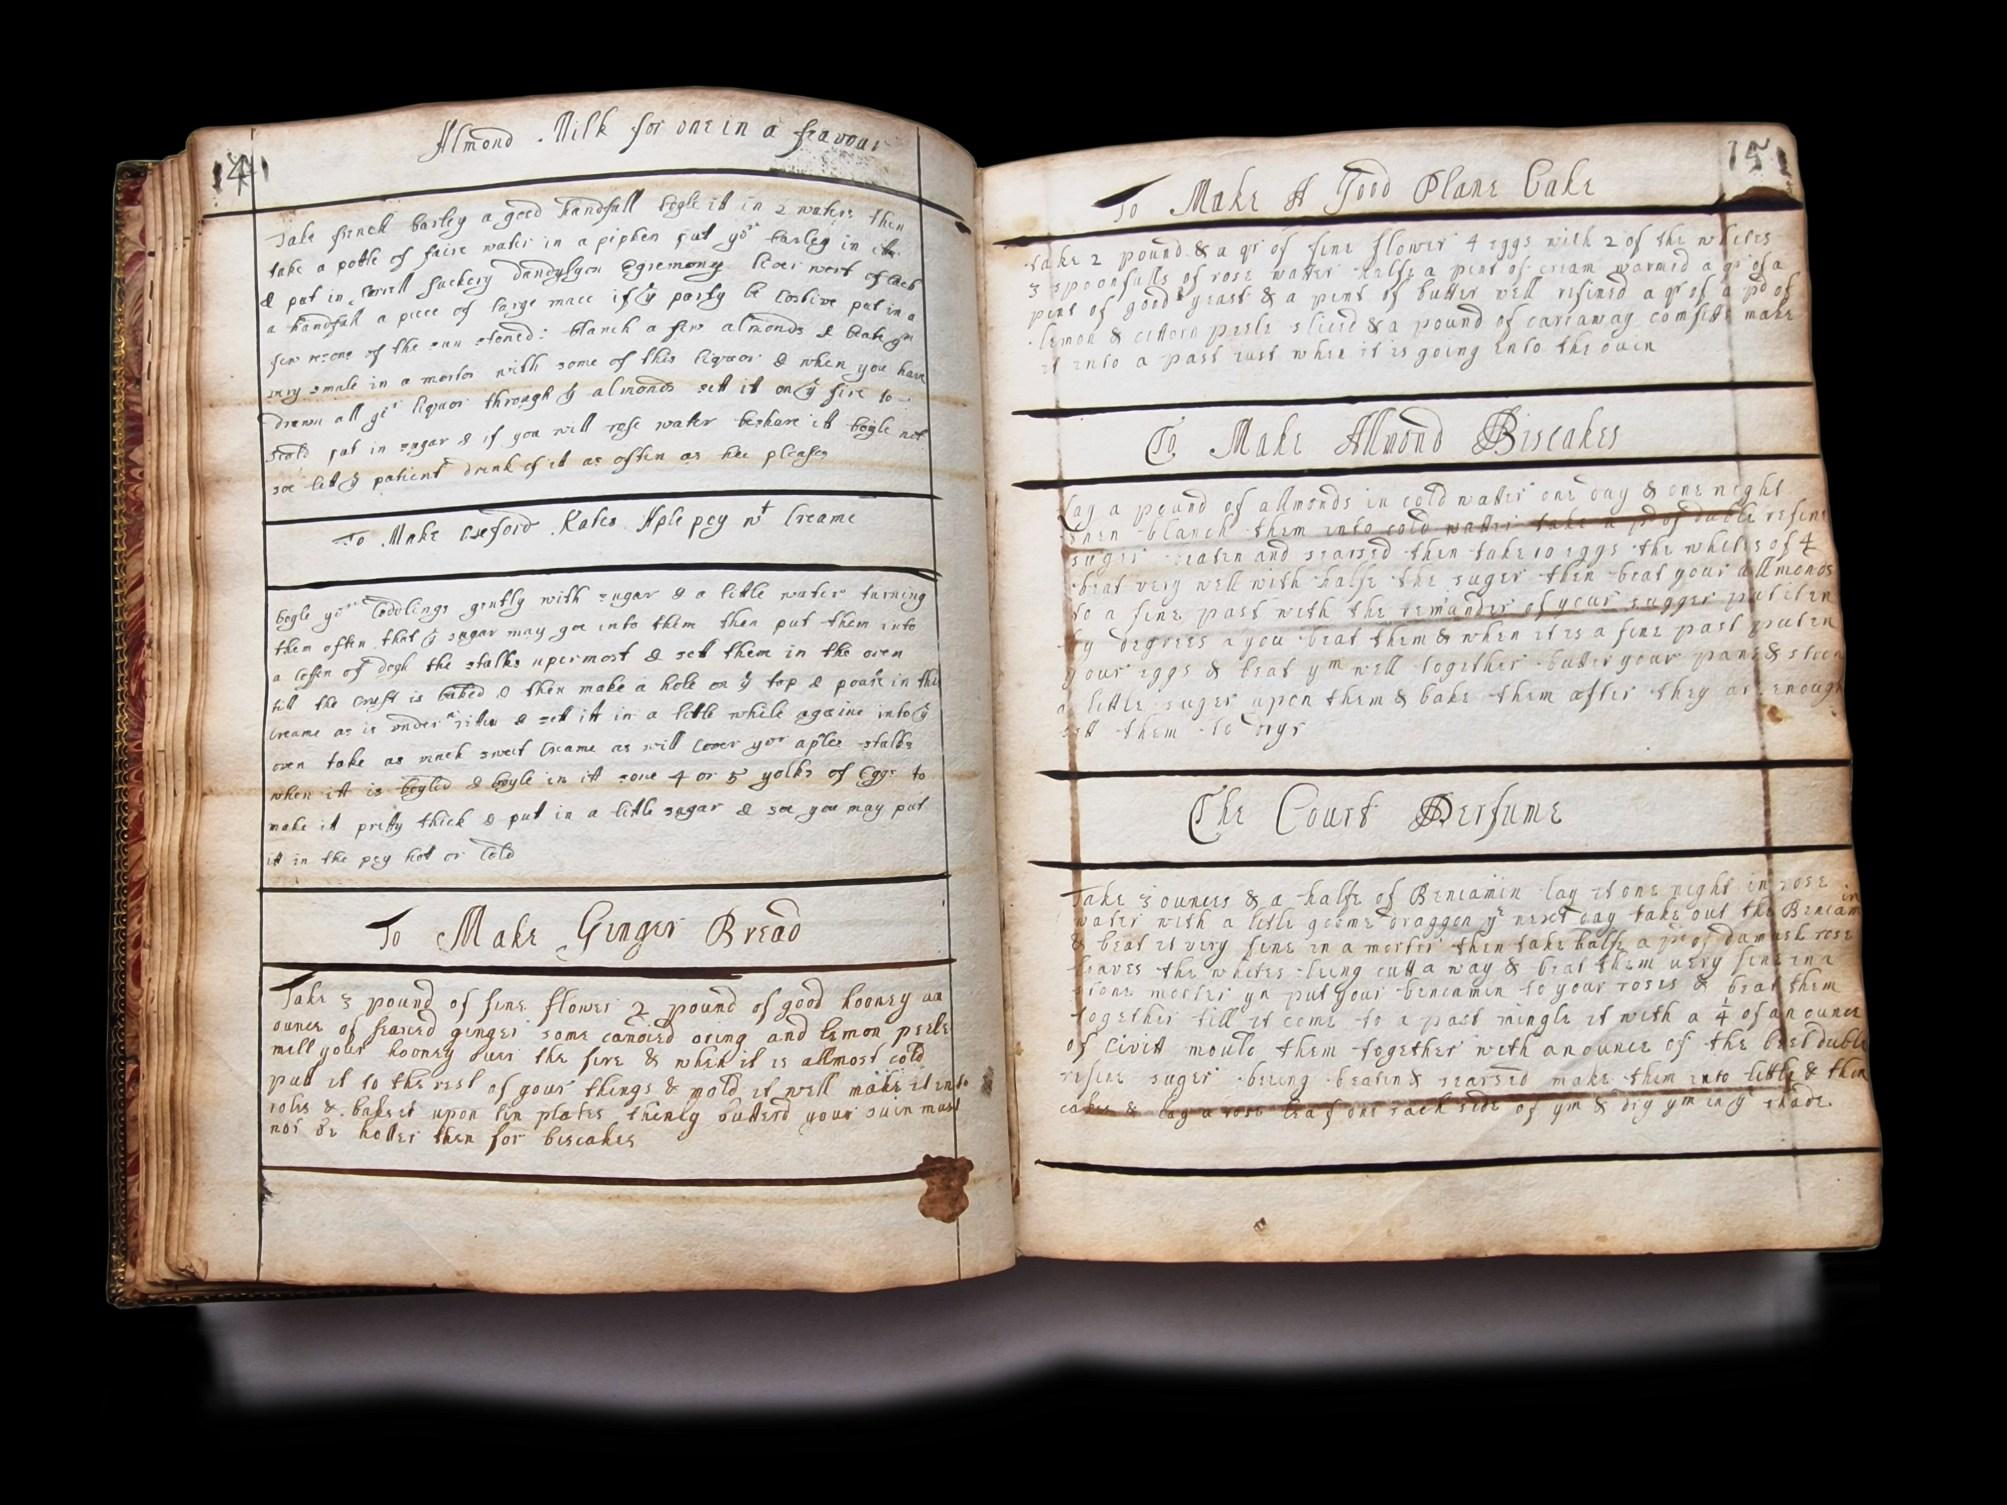 14
Almond Milk for one in a feavour
Take french barley a good handfull boyle it in 2 waters then
take a pottle of faire water in a pipken put yor barley in it
& put in sorrell suckery dandylyon Egremoney liver wort of each
a handfull a piece of large mace if ye party be Costive put in a
few resons of the sun stoned: blanch a few almonds & beate ym
very smale in a morter with some of this liquor & when you have
drawn all yor liquor through ye almonds set it on ye fire to
scald put in sugar & if you will rose water beshure it boyle not
soe lett ye patient drink of it as often as hee pleases
To Make Oxford Kates Aple pey wt Creame
boyle yor Codolings gently with sugar & a little water turning
them often that ye sugar may goe into them then put them into
a coffen of dogh the stalks upermost & set them in the oven
till the Crust is baked & then make a hole on ye top & poure in this
Creame as is underriten & set itt in a little while againe into ye
oven take as much sweet Creame as will Cover yor aples stalks
when itt is boyled & boyle in itt some 4 or 5 yolks of Eggs to
make it pritty thick & put in a little sugar & soe you may put
itt in the pey hot or Cold
To Make Ginger Bread
Take 3 pound of fine flower 2 pound of good hooney an
ounce of searced ginger some candied oring and lemon peele
mell your hooney over the fire & when it is allmost cold
put it to the rest of your things & mold it well make it into
roles & bake it upon tin plates thinly butterd your ouin must
not be hotter then for biscakes
15
To Make A Good Plane Cake
take 2 pound & a qr of fine flower 4 eggs with 2 of the whites
3 spoonfulls of rose watter halfe a pint of cream warmed a qr of a
pint of good yeast & a pint of butter well refined a qr of a pd of
lemon & cittorn peele sliced & a pound of carraway comfitts make
it into a past just when it is going into the oven
To Make Allmond Biscakes
Lay a pound of allmonds in cold water one day & one night
then blanch them into cold watter take a pd of duble refine
suger beaten and searsed then take 10 eggs the whites of 4
beat very well with halfe the suger then beat your allmonds
to a fine past with the remander of your sugger put it in
by degrees a you beat them & when it is a fine past put in
your eggs & beat ym well together butter your pans & strew
a little suger upon them & bake them after they ar enough
sett them to drys
The Court Perfume
Take 3 ounces & a halfe of Beniamin lay it one night in rose
water with a litle goome draggon ye next day take out the Beniamin
& beat it very fine in a morter then take halfe a pd of damask rose
leaves the whites being cutt a way & beat them very fine in a
stone morter yn put your beniamin to your roses & beat them
together till it come to a past mingle it with a 1/4 of an ounce
of civitt mould them together with an ounce of the best duble
refine suger being beaten & searsed make them into little & thin
cakes & lay a rose leaf one each side of ym & dry ym in ye shade.